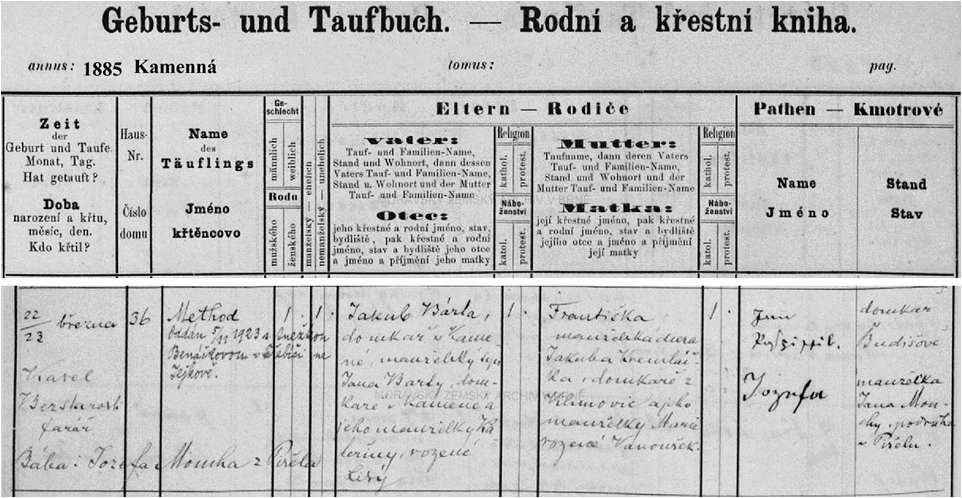 Geburts- und Taufbuch. — Rodní a křestní kniha.
annus: 1885 Kamenná tomus: pag.
Zeit
der
Geburt und Taufe
Monat, Tag.
Hat getauft?
Doba
narození a křtu,
měsíc, den.
Kdo křtil?
Haus-
Nr.
Číslo
domu
Name
des
Täuflings
Jméno
křtěncovo
Ge-
schlecht
männlich
weiblich
Rodu
mužského
ženského
manželský — ehelich
nemanželský — unehelich
Eltern — Rodiče
Vater:
Tauf- und Familien-Name,
Stand und Wohnort, dann dessen
Vaters Tauf- und Familien-Name,
Stand u. Wohnort und der Mutter
Tauf- und Familien-Name
Otec:
jeho křestné a rodní jméno, stav,
bydliště, pak křestné a rodní
jméno, stav a bydliště jeho otce
a jméno a příjmení jeho matky
Religion
kathol.
protest.
Nábo-
ženství
katol.
protest.
Mutter:
Taufname, dann deren Vaters
Tauf- und Familien-Name,
Stand und Wohnort und der
Mutter Tauf- und Familien-Name
Matka:
její křestné jméno, pak křestné
a rodní jméno, stav a bydliště
jejího otce a jméno a příjmení
její matky
Religion
kathol.
protest.
Nábo-
ženství
katol.
protest.
Pathen — Kmotrové
Name
Jméno
Stand
Stav
22/23 března
Karel
Bezstarosti
farář
Bába: Jozefa Moucha z Pirela
36
Method
oddán 5/11 1923 s Anežkou
Benáčkovou v Třebíči na
Jejkově.
1.
1.
Jakub Bárta,
domkař v Kame-
né, manželský syn
Jana Barty, dom-
kaře v Kamené a
jeho manželky Ka-
teřiny, rozené
Lisý
1.
Františka
manželská dcera
Jakuba
domkaře z
Klimovic a jeho
manželky Marie
rozené Vanoušek.
1.
Jan
Pospíšil.
Jozefa
domkař
Budišově
manželka
Jana Mou-
chy, podruha
v Pirelu.
MORAVSKÝ ZEMSKÝ ARCHIV V BRNĚ